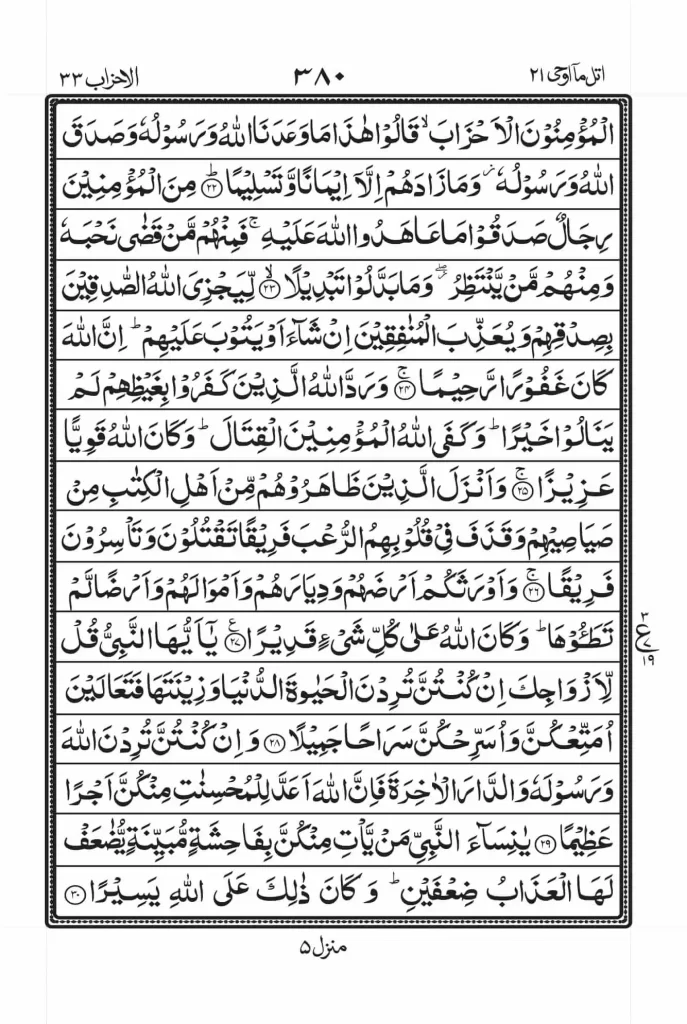 اتل مآ اوحی ۲۱
۳۸۰
الاحزاب ۳۳
الْمُؤْمِنُوْنَ الْاَحْزَابَ ۙ قَالُوْا هٰذَا مَا وَعَدَنَا اللّٰهُ وَرَسُوْلُهٗ وَصَدَقَ
اللّٰهُ وَرَسُوْلُهٗ ۡ وَمَا زَادَهُمْ اِلَّاۤ اِيْمَانًا وَّتَسْلِيْمًا ؕ ﴿۲۲﴾ مِنَ الْمُؤْمِنِيْنَ
رِجَالٌ صَدَقُوْا مَا عَاهَدُوا اللّٰهَ عَلَيْهِ ۚ فَمِنْهُمْ مَّنْ قَضٰى نَحْبَهٗ
وَمِنْهُمْ مَّنْ يَّنْتَظِرُ ۖ وَمَا بَدَّلُوْا تَبْدِيْلًا ۙ ﴿۲۳﴾ لِّيَجْزِيَ اللّٰهُ الصّٰدِقِيْنَ
بِصِدْقِهِمْ وَيُعَذِّبَ الْمُنٰفِقِيْنَ اِنْ شَآءَ اَوْ يَتُوْبَ عَلَيْهِمْ ؕ اِنَّ اللّٰهَ
كَانَ غَفُوْرًا رَّحِيْمًا ۚ ﴿۲۴﴾ وَرَدَّ اللّٰهُ الَّذِيْنَ كَفَرُوْا بِغَيْظِهِمْ لَمْ
يَنَالُوْا خَيْرًا ؕ وَكَفَى اللّٰهُ الْمُؤْمِنِيْنَ الْقِتَالَ ؕ وَكَانَ اللّٰهُ قَوِيًّا
عَزِيْزًا ۚ ﴿۲۵﴾ وَاَنْزَلَ الَّذِيْنَ ظَاهَرُوْهُمْ مِّنْ اَهْلِ الْكِتٰبِ مِنْ
صَيَاصِيْهِمْ وَقَذَفَ فِيْ قُلُوْبِهِمُ الرُّعْبَ فَرِيْقًا تَقْتُلُوْنَ وَتَاْسِرُوْنَ
فَرِيْقًا ۚ ﴿۲۶﴾ وَاَوْرَثَكُمْ اَرْضَهُمْ وَدِيَارَهُمْ وَاَمْوَالَهُمْ وَاَرْضًا لَّمْ
تَطَـُٔوْهَا ؕ وَكَانَ اللّٰهُ عَلٰى كُلِّ شَيْءٍ قَدِيْرًا ﴿۲۷﴾ ع يٰۤاَيُّهَا النَّبِيُّ قُلْ
۳
ع
۷
۱۹
لِّاَزْوَاجِكَ اِنْ كُنْتُنَّ تُرِدْنَ الْحَيٰوةَ الدُّنْيَا وَزِيْنَتَهَا فَتَعَالَيْنَ
اُمَتِّعْكُنَّ وَاُسَرِّحْكُنَّ سَرَاحًا جَمِيْلًا ﴿۲۸﴾ وَاِنْ كُنْتُنَّ تُرِدْنَ اللّٰهَ
وَرَسُوْلَهٗ وَالدَّارَ الْاٰخِرَةَ فَاِنَّ اللّٰهَ اَعَدَّ لِلْمُحْسِنٰتِ مِنْكُنَّ اَجْرًا
عَظِيْمًا ﴿۲۹﴾ يٰنِسَآءَ النَّبِيِّ مَنْ يَّاْتِ مِنْكُنَّ بِفَاحِشَةٍ مُّبَيِّنَةٍ يُّضٰعَفْ
لَهَا الْعَذَابُ ضِعْفَيْنِ ؕ وَكَانَ ذٰلِكَ عَلَى اللّٰهِ يَسِيْرًا ﴿۳۰﴾
منزل ۵